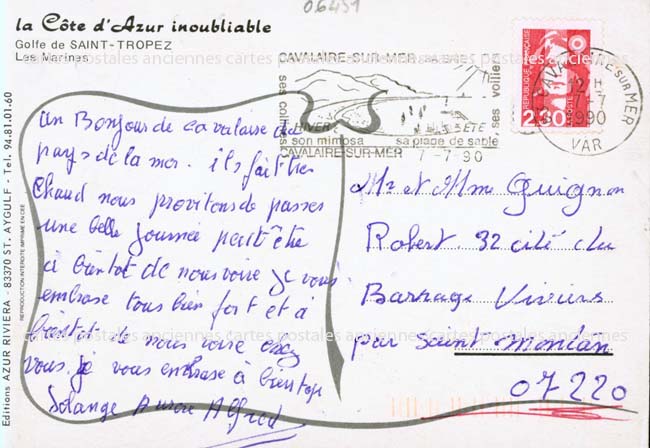 06431
la Côte d'Azur inoubliable
Golfe de SAINT-TROPEZ
Les Marines
cartes postales anciennes cartes postales anciennes cartes postales anciennes
CAVALAIRE-SUR-MER
ses collines
HIVER
son mimosa
ETE
sa plage de sable
ses voiliers
CAVALAIRE-SUR-MER
7-7-90
CAVALAIRE-SUR-MER
12 H
7-7
1990
VAR
REPUBLIQUE FRANÇAISE
LA POSTE
2,30
un Bonjour de cavalaire du
pays de la mer. ils fait tres
chaud nous provitons de passer
une belle journée peut être
à bientot de nous voire je vous
embrase tous bien fort et à
bientot de nous voire chez
vous. je vous embrase à bientot
Solange Aurore Alfred
Mr et Mme Guignon
Robert. 32 cité du
Barrage Viviers
par Saint Montan
07220
Editions AZUR RIVIERA - 83370 ST. AYGULF - Tel. 94.81.01.60
REPRODUCTION INTERDITE IMPRIME EN CEE